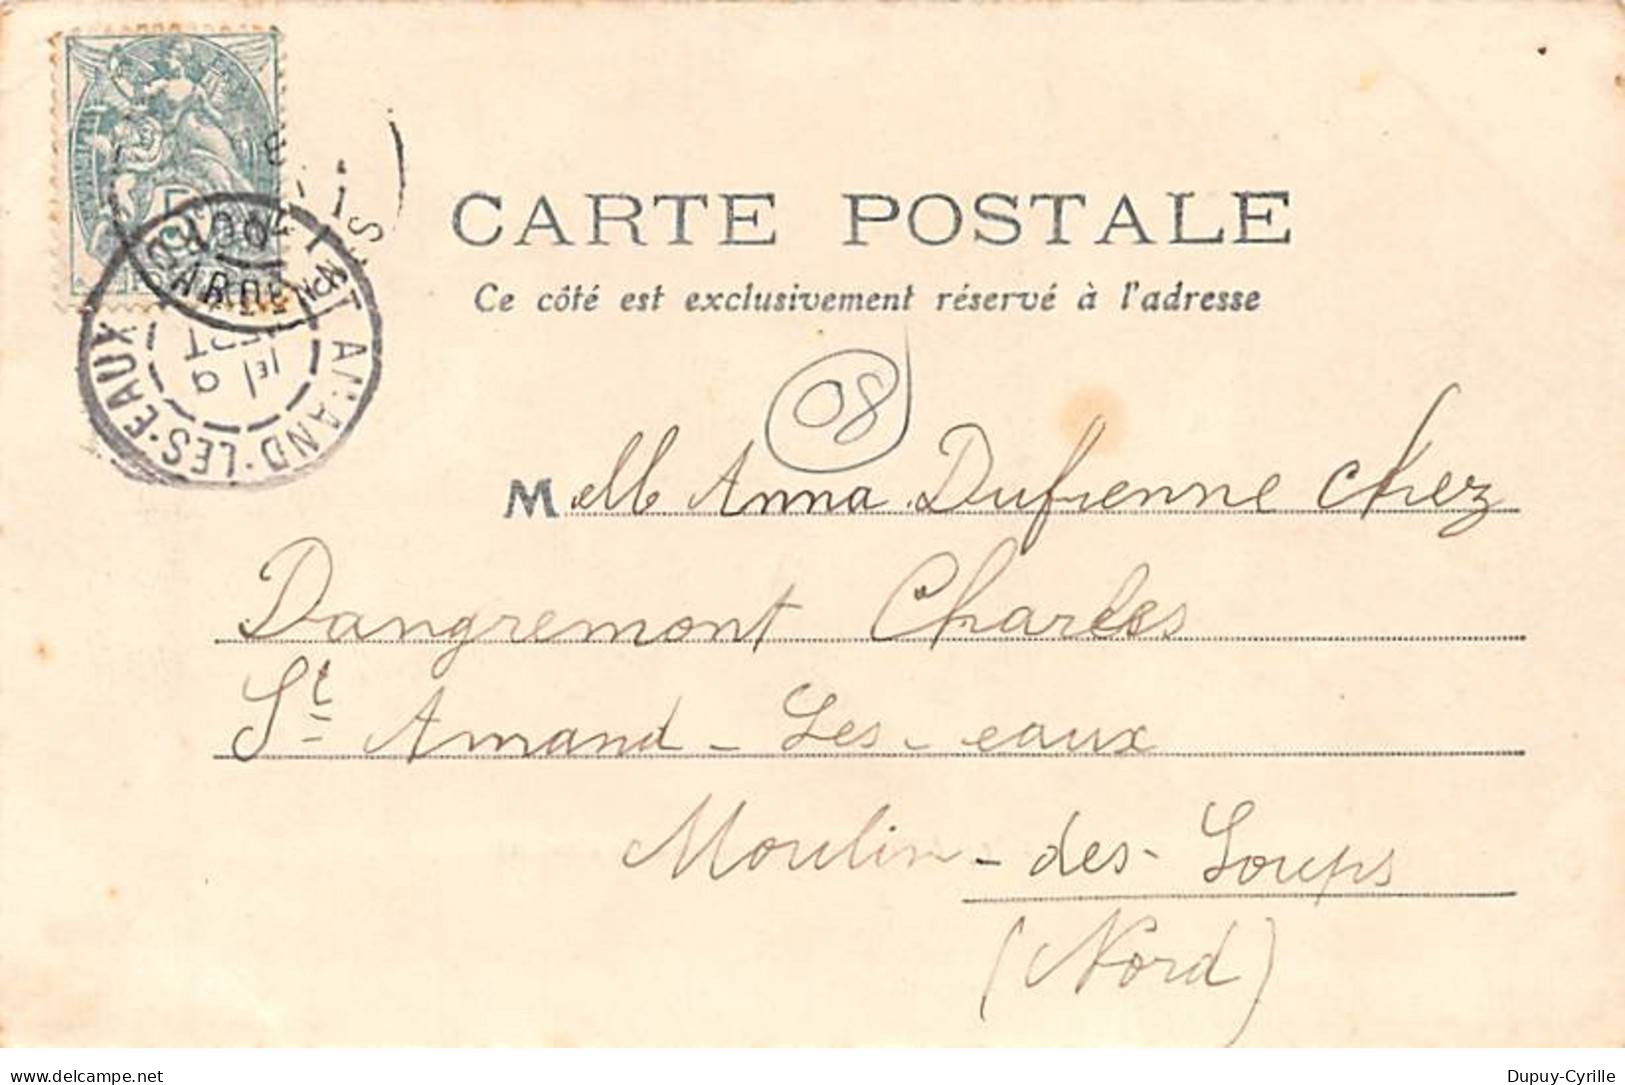 CARTE POSTALE
Ce côté est exclusivement réservé à l'adresse
08
Melle Anna Dufrenne chez
Dangremont Charles
St Amand - Les - eaux
Moulin - des - Loups
(Nord)
ST AMAND·LES·EAUX
ARDENNES
delcampe.net
Dupuy-Cyrille